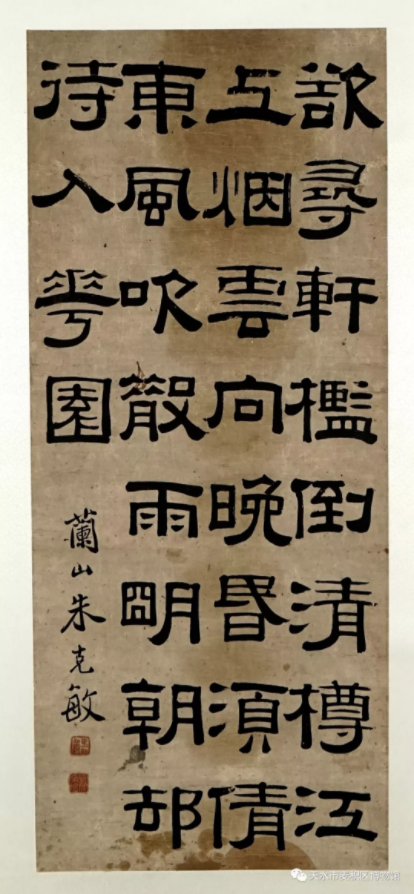 欲尋軒檻倒清樽江
上烟雲向晚昏須倩
東風吹散雨朙朝却
待入華園
蘭山朱克敏